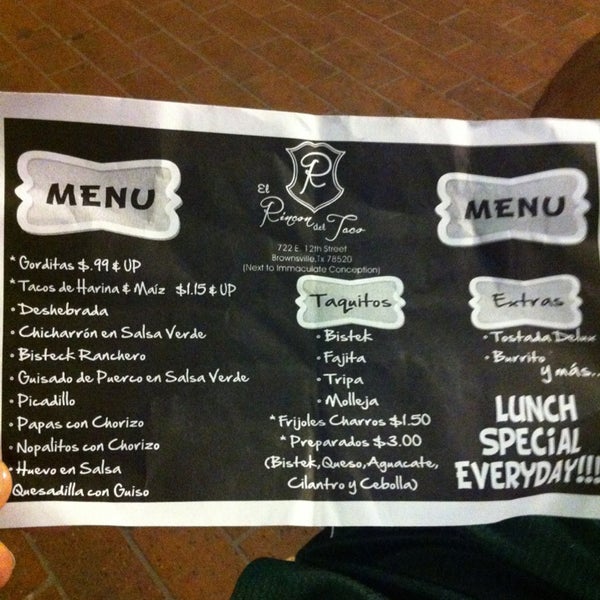 MENU
R
El
Rincon del Taco
722 E. 12th Street
Brownsville, Tx 78520
(Next to Immaculate Conception)
MENU
* Gorditas $.99 & UP
* Tacos de Harina & Maíz $1.15 & UP
• Deshebrada
• Chicharrón en Salsa Verde
• Bisteck Ranchero
• Guisado de Puerco en Salsa Verde
• Picadillo
• Papas con Chorizo
• Nopalitos con Chorizo
• Huevo en Salsa
Quesadilla con Guiso
Taquitos
• Bistek
• Fajita
• Tripa
• Molleja
* Frijoles Charros $1.50
* Preparados $3.00
(Bistek, Queso, Aguacate,
Cilantro y Cebolla)
Extras
• Tostada Delux
• Burrito
y más..
LUNCH
SPECiAL
EVERYDAY!!!